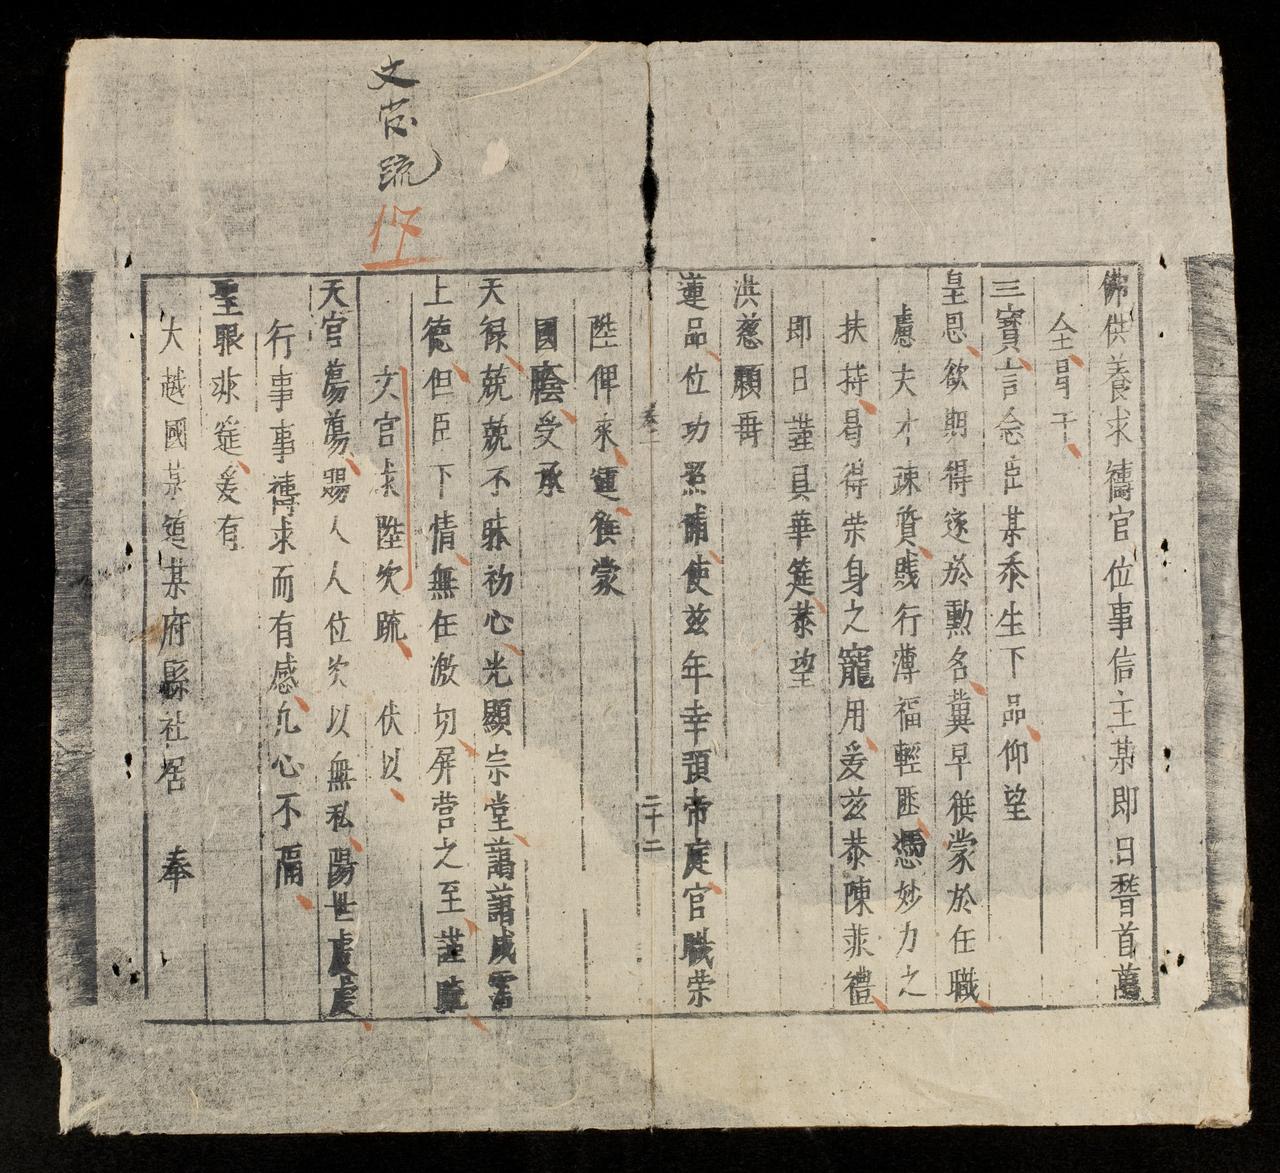 佛供養求禱官位事信主某即日稽首萬
仝冐干
三寶言念臣某忝生下品仰望
皇恩欲期得遂於勲名冀早獲蒙於任職
慮夫才疎質賤行薄福輕匪憑妙力之
扶持曷得荣身之寵用爰茲恭陳菲禮
即日謹具華筵恭望
洪慈願再
蓮品位功照補使茲年幸預帝庭官職荣
陞俾來運獲蒙
卷二
二十二
國蔭受承
天祿兢兢不昧初心光顯宗堂藹藹咸霑
上德但臣下情無任激切屏营之至謹疏
文官求陞次疏 伏以
天官蕩蕩賜人人位次以無私陽世處處
行事事禱求而有感凢心不隔
聖眼菲筵爰有
大越國某道某府縣社居 奉
文官疏
17